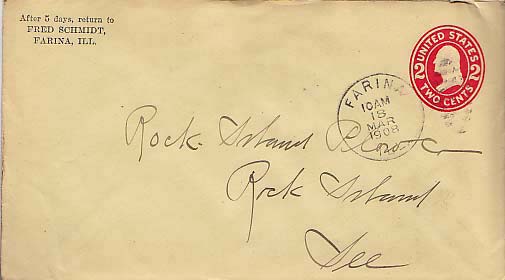 After 5 days, return to
FRED SCHMIDT,
FARINA, ILL.
UNITED STATES
2 2
TWO CENTS
FARINA
10AM
18
MAR
1908
Rock Island Plow Co.
Rock Island
Ill